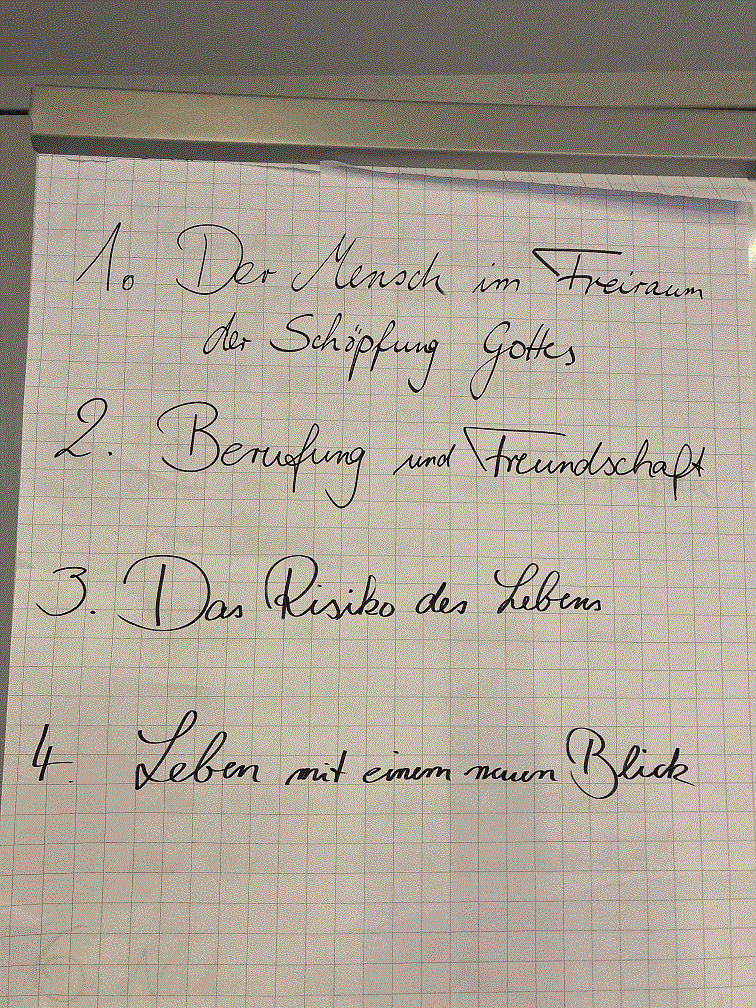 1. Der Mensch im Freiraum
der Schöpfung Gottes
2. Berufung und Freundschaft
3. Das Risiko des Lebens
4. Leben mit einem neuen Blick